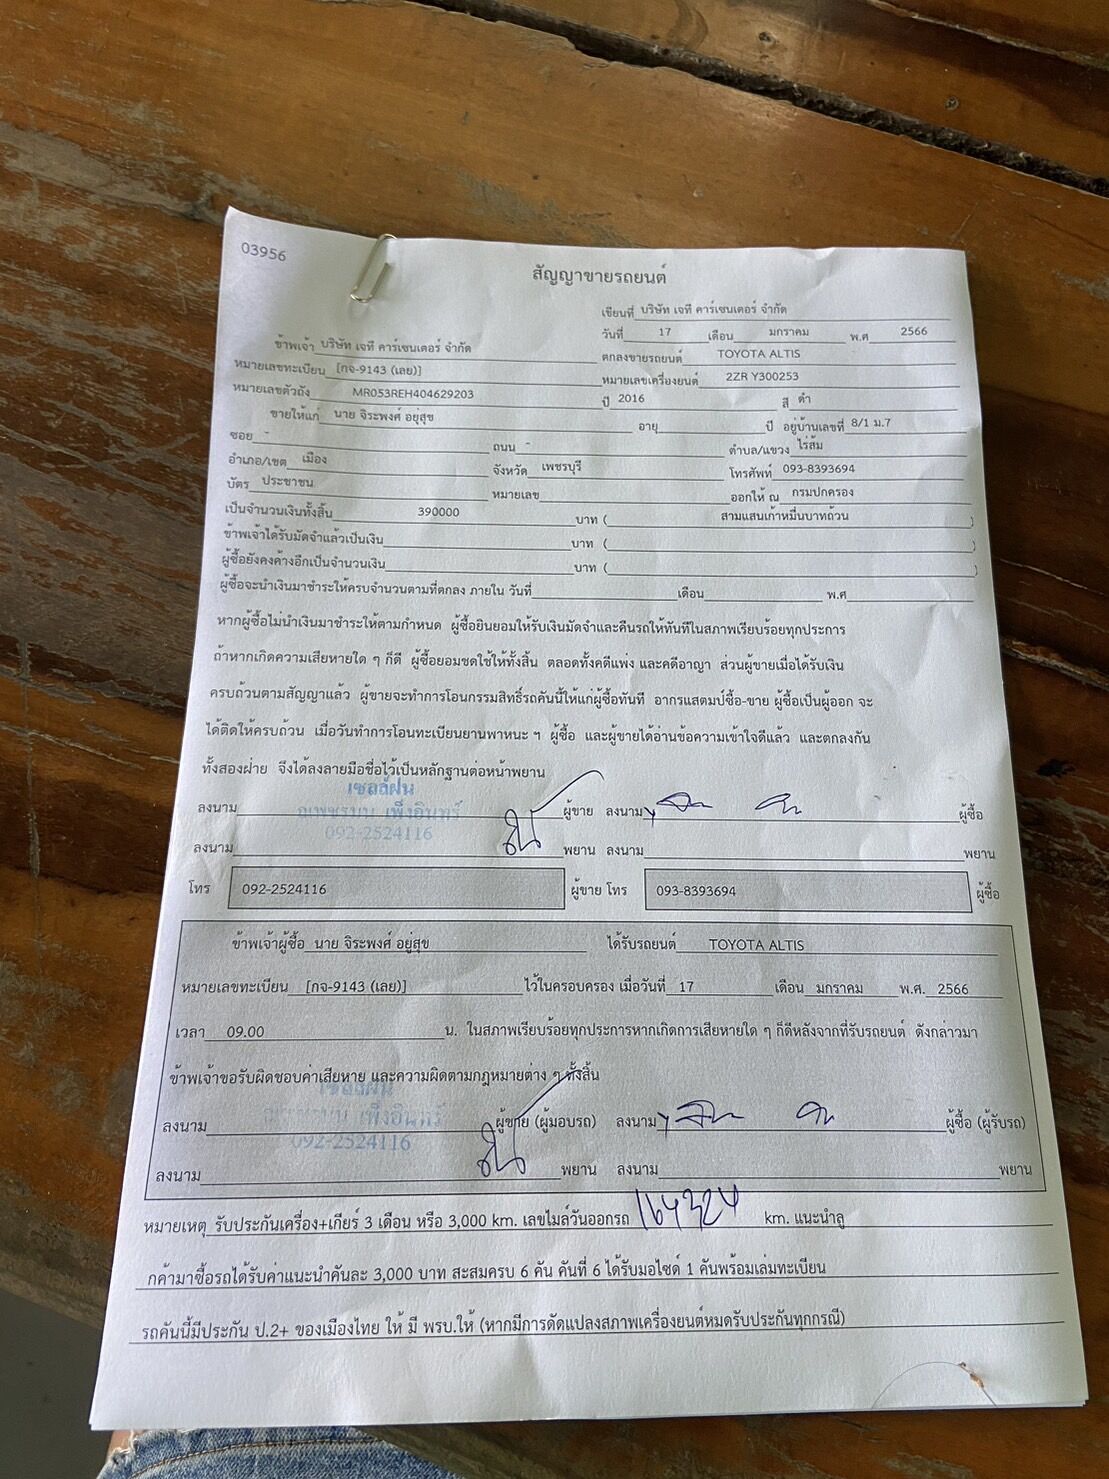 03956
สัญญาขายรถยนต์
เขียนที่ บริษัท เจที คาร์เซนเตอร์ จำกัด
วันที่ 17 เดือน มกราคม พ.ศ 2566
ข้าพเจ้า บริษัท เจที คาร์เซนเตอร์ จำกัด ตกลงขายรถยนต์ TOYOTA ALTIS
หมายเลขทะเบียน [กจ-9143 (เลย)] หมายเลขเครื่องยนต์ 2ZR Y300253
หมายเลขตัวถัง MR053REH404629203 ปี 2016 สี ดำ
ขายให้แก่ นาย จิระพงศ์ อยู่สุข อายุ ปี อยู่บ้านเลขที่ 8/1 ม.7
ซอย - ถนน - ตำบล/แขวง ไร่ส้ม
อำเภอ/เขต เมือง จังหวัด เพชรบุรี โทรศัพท์ 093-8393694
บัตร ประชาชน หมายเลข ออกให้ ณ กรมปกครอง
เป็นจำนวนเงินทั้งสิ้น 390000 บาท ( สามแสนเก้าหมื่นบาทถ้วน )
ข้าพเจ้าได้รับมัดจำแล้วเป็นเงิน บาท ( )
ผู้ซื้อยังคงค้างอีกเป็นจำนวนเงิน บาท ( )
ผู้ซื้อจะนำเงินมาชำระให้ครบจำนวนตามที่ตกลง ภายใน วันที่ เดือน พ.ศ
หากผู้ซื้อไม่นำเงินมาชำระให้ตามกำหนด ผู้ซื้อยินยอมให้รับเงินมัดจำและคืนรถให้ทันทีในสภาพเรียบร้อยทุกประการ
ถ้าหากเกิดความเสียหายใด ๆ ก็ดี ผู้ซื้อยอมชดใช้ให้ทั้งสิ้น ตลอดทั้งคดีแพ่ง และคดีอาญา ส่วนผู้ขายเมื่อได้รับเงิน
ครบถ้วนตามสัญญาแล้ว ผู้ขายจะทำการโอนกรรมสิทธิ์รถคันนี้ให้แก่ผู้ซื้อทันที อากรแสตมป์ซื้อ-ขาย ผู้ซื้อเป็นผู้ออก จะ
ได้ติดให้ครบถ้วน เมื่อวันทำการโอนทะเบียนยานพาหนะ ฯ ผู้ซื้อ และผู้ขายได้อ่านข้อความเข้าใจดีแล้ว และตกลงกัน
ทั้งสองฝ่าย จึงได้ลงลายมือชื่อไว้เป็นหลักฐานต่อหน้าพยาน
เซลล์ฝน
ลงนาม ผู้ขาย ลงนาม ผู้ซื้อ
เพ็งอินทร์
092-2524116
ลงนาม พยาน ลงนาม พยาน
โทร 092-2524116 ผู้ขาย โทร 093-8393694 ผู้ซื้อ
ข้าพเจ้าผู้ซื้อ นาย จิระพงศ์ อยู่สุข ได้รับรถยนต์ TOYOTA ALTIS
หมายเลขทะเบียน [กจ-9143 (เลย)] ไว้ในครอบครอง เมื่อวันที่ 17 เดือน มกราคม พ.ศ. 2566
เวลา 09.00 น. ในสภาพเรียบร้อยทุกประการหากเกิดการเสียหายใด ๆ ก็ดีหลังจากที่รับรถยนต์ ดังกล่าวมา
ข้าพเจ้าขอรับผิดชอบค่าเสียหาย และความผิดตามกฎหมายต่าง ๆ ทั้งสิ้น
เซลล์ฝน
ลงนาม ผู้ขาย (ผู้มอบรถ) ลงนาม ผู้ซื้อ (ผู้รับรถ)
เพ็งอินทร์
092-2524116
ลงนาม พยาน ลงนาม พยาน
หมายเหตุ รับประกันเครื่อง+เกียร์ 3 เดือน หรือ 3,000 km. เลขไมล์วันออกรถ 164324 km. แนะนำลู
กค้ามาซื้อรถได้รับค่าแนะนำคันละ 3,000 บาท สะสมครบ 6 คัน คันที่ 6 ได้รับมอไซด์ 1 คันพร้อมเล่มทะเบียน
รถคันนี้มีประกัน ป.2+ ของเมืองไทย ให้ มี พรบ.ให้ (หากมีการดัดแปลงสภาพเครื่องยนต์หมดรับประกันทุกกรณี)